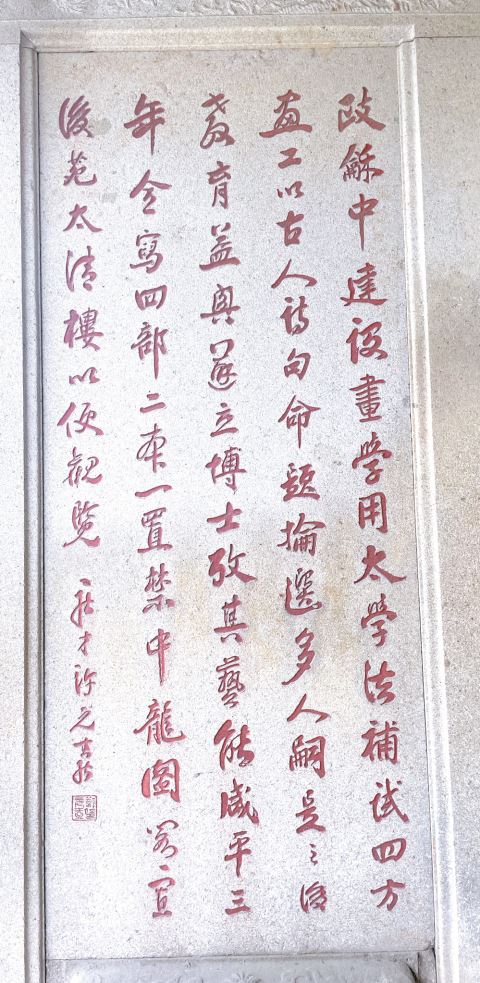 政龢中建設畫學用太學法補試四方
画工以古人詩句命題掄選多人嗣是之後
教育益興遂立博士攷其藝能咸平三
年令寫四部二本一置禁中龍圖閣一置
後苑太清樓以便觀覽